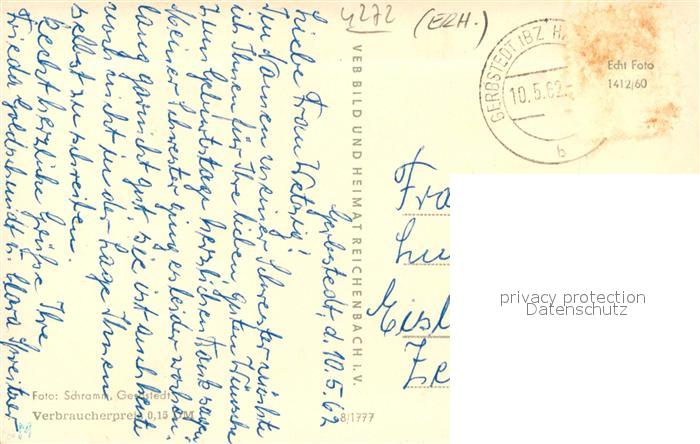 4272
(ERH.)
GERBSTEDT (BZ HA
10.5.62
b
Echt Foto
1412/60
Gerbstedt, d. 10.5.62
Liebe Frau
Im Namen meiner Schwester möchte
ich Ihnen für Ihre lieben, guten Wünsche
zum Geburtstage herzlichen Dank sagen.
Meiner Schwester ging es leider wochen-
lang garnicht gut, sie ist auch heute
noch nicht in der Lage Ihnen
selbst zu schreiben.
Recht herzliche Grüße Ihre
Frieda Goldschmidt u. Klara Spreitzer
VEB BILD UND HEIMAT REICHENBACH i. V.
Fra
Lu
Eisl
Foto: Schramm, Gerbstedt
Verbraucherpreis 0,15 DM
8/1777
privacy protection
Datenschutz